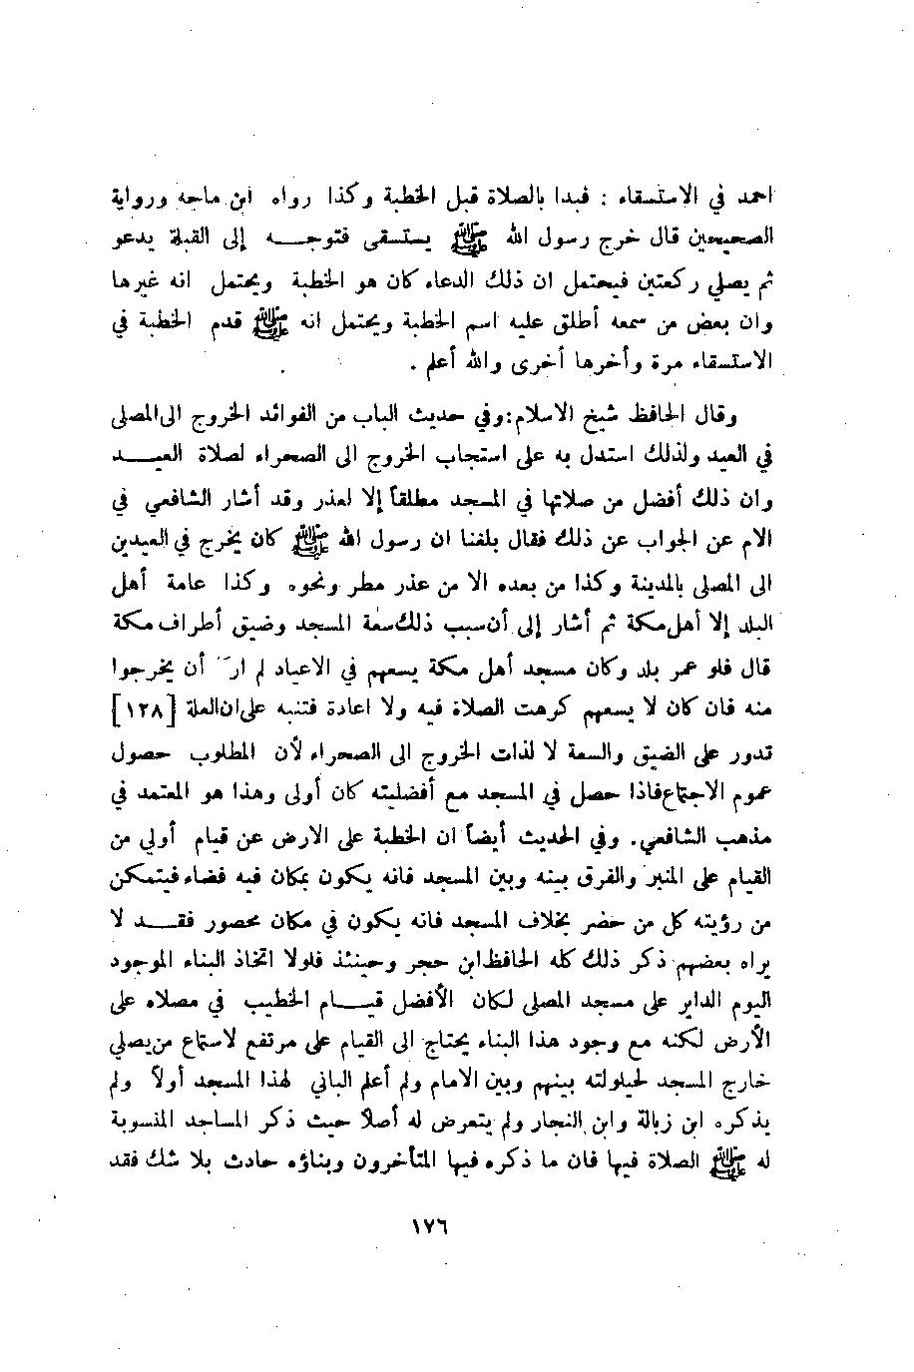 احمد في الاستسقاء : فبدا بالصلاة قبل الخطبة وكذا رواه ابن ماجه ورواية
الصحيحين قال خرج رسول الله ﷺ يستسقى فتوجـــه إلى القبلة يدعو
ثم يصلي ركعتين فيحتمل ان ذلك الدعاء كان هو الخطبة ويحتمل انه غيرها
وان بعض من سمعه أطلق عليه اسم الخطبة ويحتمل انه ﷺ قدم الخطبة في
الاستسقاء مرة وأخرها أخرى والله أعلم .
وقال الحافظ شيخ الاسلام:وفي حديث الباب من الفوائد الخروج الى المصلى
في العيد ولذلك استدل به على استجاب الخروج الى الصحراء لصلاة العيـــد
وان ذلك أفضل من صلاتها في المسجد مطلقاً إلا لعذر وقد أشار الشافعي في
الام عن الجواب عن ذلك فقال بلغنا ان رسول الله ﷺ كان يخرج في العيدين
الى المصلى بالمدينة وكذا من بعده الا من عذر مطر ونحوه وكذا عامة أهل
البلد إلا أهل مكة ثم أشار إلى أن سبب ذلك سعة المسجد وضيق أطراف مكة
قال فلو عمر بلد وكان مسجد أهل مكة يسعهم في الاعياد لم ار أن يخرجوا
منه فان كان لا يسعهم كرهت الصلاة فيه ولا اعادة فتنبه على ان العلة [١٢٨]
تدور على الضيق والسعة لا لذات الخروج الى الصحراء لأن المطلوب حصول
عموم الاجتماع فاذا حصل في المسجد مع أفضليته كان أولى وهذا هو المعتمد في
مذهب الشافعي. وفي الحديث أيضاً ان الخطبة على الارض عن قيام أولي من
القيام على المنبر والفرق بينه وبين المسجد فانه يكون بمكان فيه فضاء فيتمكن
من رؤيته كل من حضر بخلاف المسجد فانه يكون في مكان محصور فقـــد لا
يراه بعضهم ذكر ذلك كله الحافظ ابن حجر وحينئذ فلولا اتخاذ البناء الموجود
اليوم الداير على مسجد المصلى لكان الأفضل قيـــام الخطيب في مصلاه على
الأرض لكنه مع وجود هذا البناء يحتاج الى القيام على مرتفع لاستماع من يصلي
خارج المسجد لحيلولته بينهم وبين الامام ولم أعلم الباني لهذا المسجد أولاً ولم
يذكره ابن زبالة وابن النجار ولم يتعرض له أصلاً حيث ذكر المساجد المنسوبة
له ﷺ الصلاة فيها فان ما ذكره فيها المتأخرون وبناؤه حادث بلا شك فقد
١٧٦